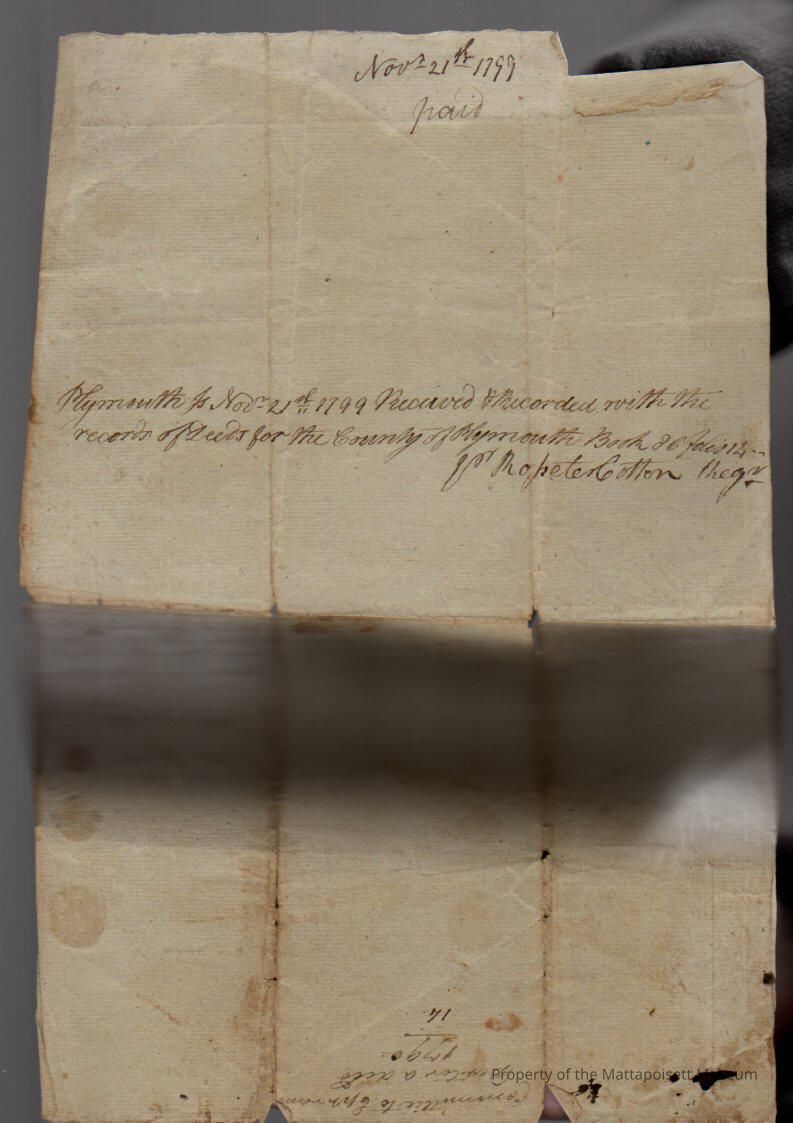 Novr 21th 1799
paid
Plymouth ss Novr 21th 1799 Received & Recorded with the
records of Deeds for the County of Plymouth Book 86 folio 14
pr Rosseter Cotton Regr
Committe to Ephraim
Dexter a deed
1790
14
Property of the Mattapoisett Museum